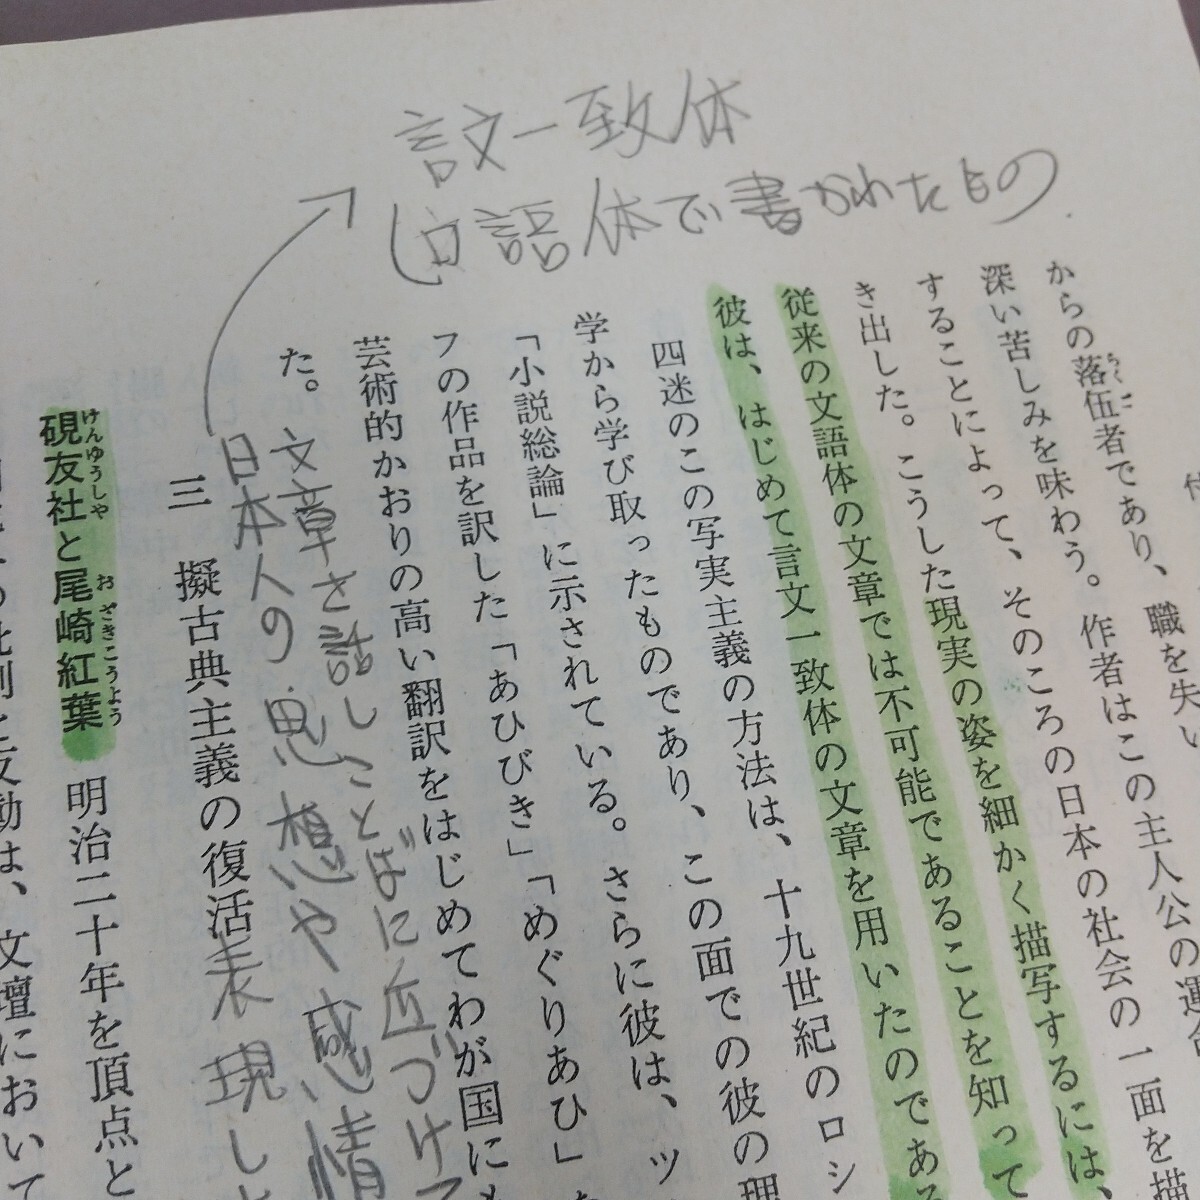 言文一致体
口語体で書かれたもの
からの落伍者であり、職を失い
深い苦しみを味わう。作者はこの主人公の運
することによって、そのころの日本の社会の一面を描
き出した。こうした現実の姿を細かく描写するには、
従来の文語体の文章では不可能であることを知って
彼は、はじめて言文一致体の文章を用いたのである
四迷のこの写実主義の方法は、十九世紀のロシ
学から学び取ったものであり、この面での彼の理
「小説総論」に示されている。さらに彼は、ツ
フの作品を訳した「あひびき」「めぐりあひ」
芸術的かおりの高い翻訳をはじめてわが国に
た。
文章を話しことばに近づけて
日本人の思想や感情
表現し
三　擬古典主義の復活
硯友社と尾崎紅葉　明治二十年を頂点と
反動は、文壇において